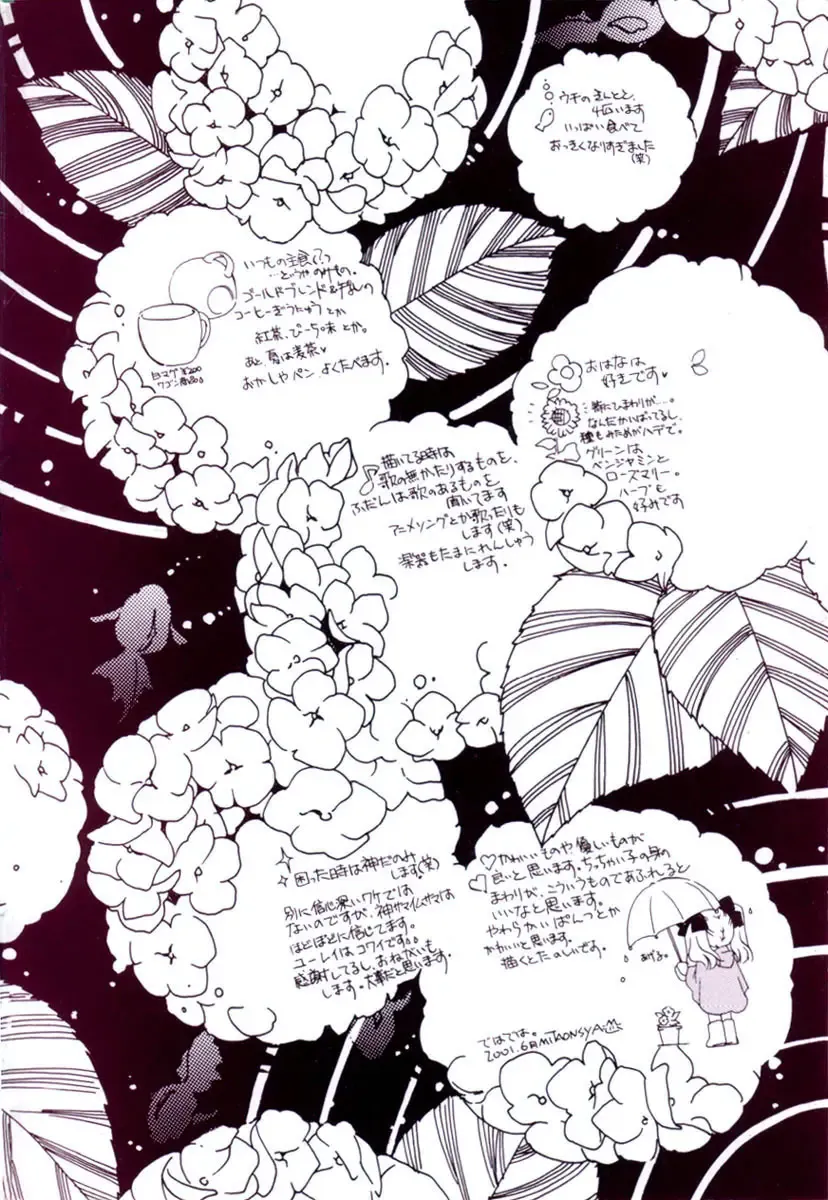 ウチのきんとと、
4匹います
いっぱい食べて
おっきくなりすぎました
(笑)
いつもの主食(?)っ
…どりゃのみもの。
ゴールドブレンド&きなこの
コーヒーぎうにゅうとか
紅茶、ぴーち味とか。
あと、夏は麦茶♥
おかしやパン、よくたべます。
白マグ ¥200
ワゴン商品
おはなは
好きです♥
…特にひまわりが…。
なんだかいばってるし、
種もみためがハデで。
グリーンは
ベンジャミンと
ローズマリー。
ハーブも
好めです
♪描いてる時は
歌の無かたりするものを、
ふだんは歌のあるものを
聞いてます
アニメソングとか歌ったりも
します(笑)
楽器もたまにれんしゅう
します。
困った時は神だのみ
します(笑)
別に信心深いワケでは
ないのですが、神サマイムサマは
ほどほどに信じてます。
ユーレイはコワイです
感謝してるし、おねがいも
します。大事だと思います。
♡かわいいものや優しいものが
♡良いと思います。ちっちゃい子の身の
まわりが、こういうものであふれると
いいなと思います。
やわらかいぱんつとか
かわいいと思います。
描くとたのしいです。
あげる。
ではでは。
2001.6月 MITAONSYA